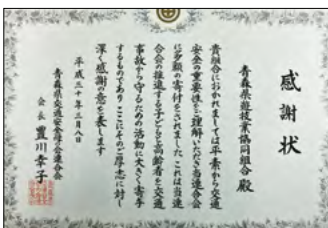 感謝状
青森県遊技業協同組合 殿
貴組合におかれましては平素から交通
安全の重要性をご理解いただき当連合会
に多額の寄付をされました これは当連
合会の推進する子どもと高齢者を交通
事故から守るための活動に大きく寄与
するものであり ここにそのご厚志に対し
深く感謝の意を表します
平成三十年三月八日
青森県交通安全母の会連合会
会長 豊川幸子